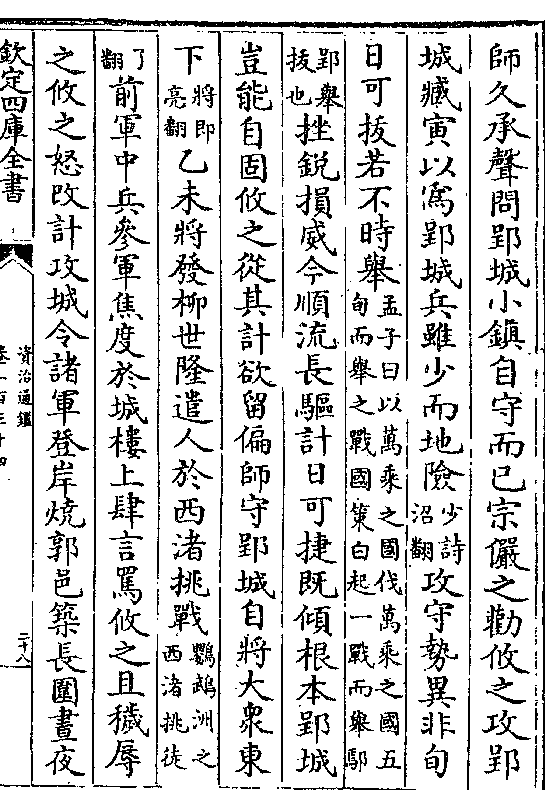 師久承聲問郢城小鎮自守而已宗儼之勸攸之攻郢
城臧寅以爲郢城兵雖少而地險少詩沼翻攻守勢異非旬
日可拔若不時舉孟子曰以萬乘之國伐萬乘之國五旬而舉之戰國策白起一戰而舉鄢
郢舉拔也挫鋭損威今順流長驅計日可捷既傾根本郢城
豈能自固攸之從其計欲留偏師守郢城自將大衆東
下將即亮翻乙未將發柳世隆遣人於西渚挑戰鸚鵡洲之西渚挑徒
了翻前軍中兵參軍焦度於城樓上肆言罵攸之且穢辱
之攸之怒改計攻城令諸軍登岸燒郭邑築長圍晝夜
欽定四庫全書
資治通鑑
卷一百三十四
二十八